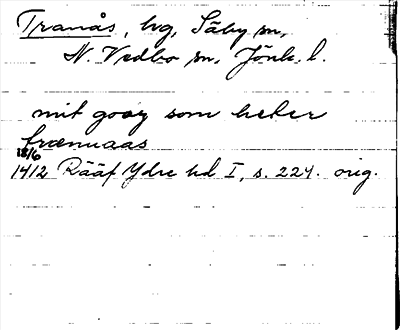 Tranås, hg, Säby sn,
N. Vedbo sn, Jönk. l.
mit goaz som heter
trænnaas
18/6
1412 Rääf Ydre hd I, s. 224. orig.